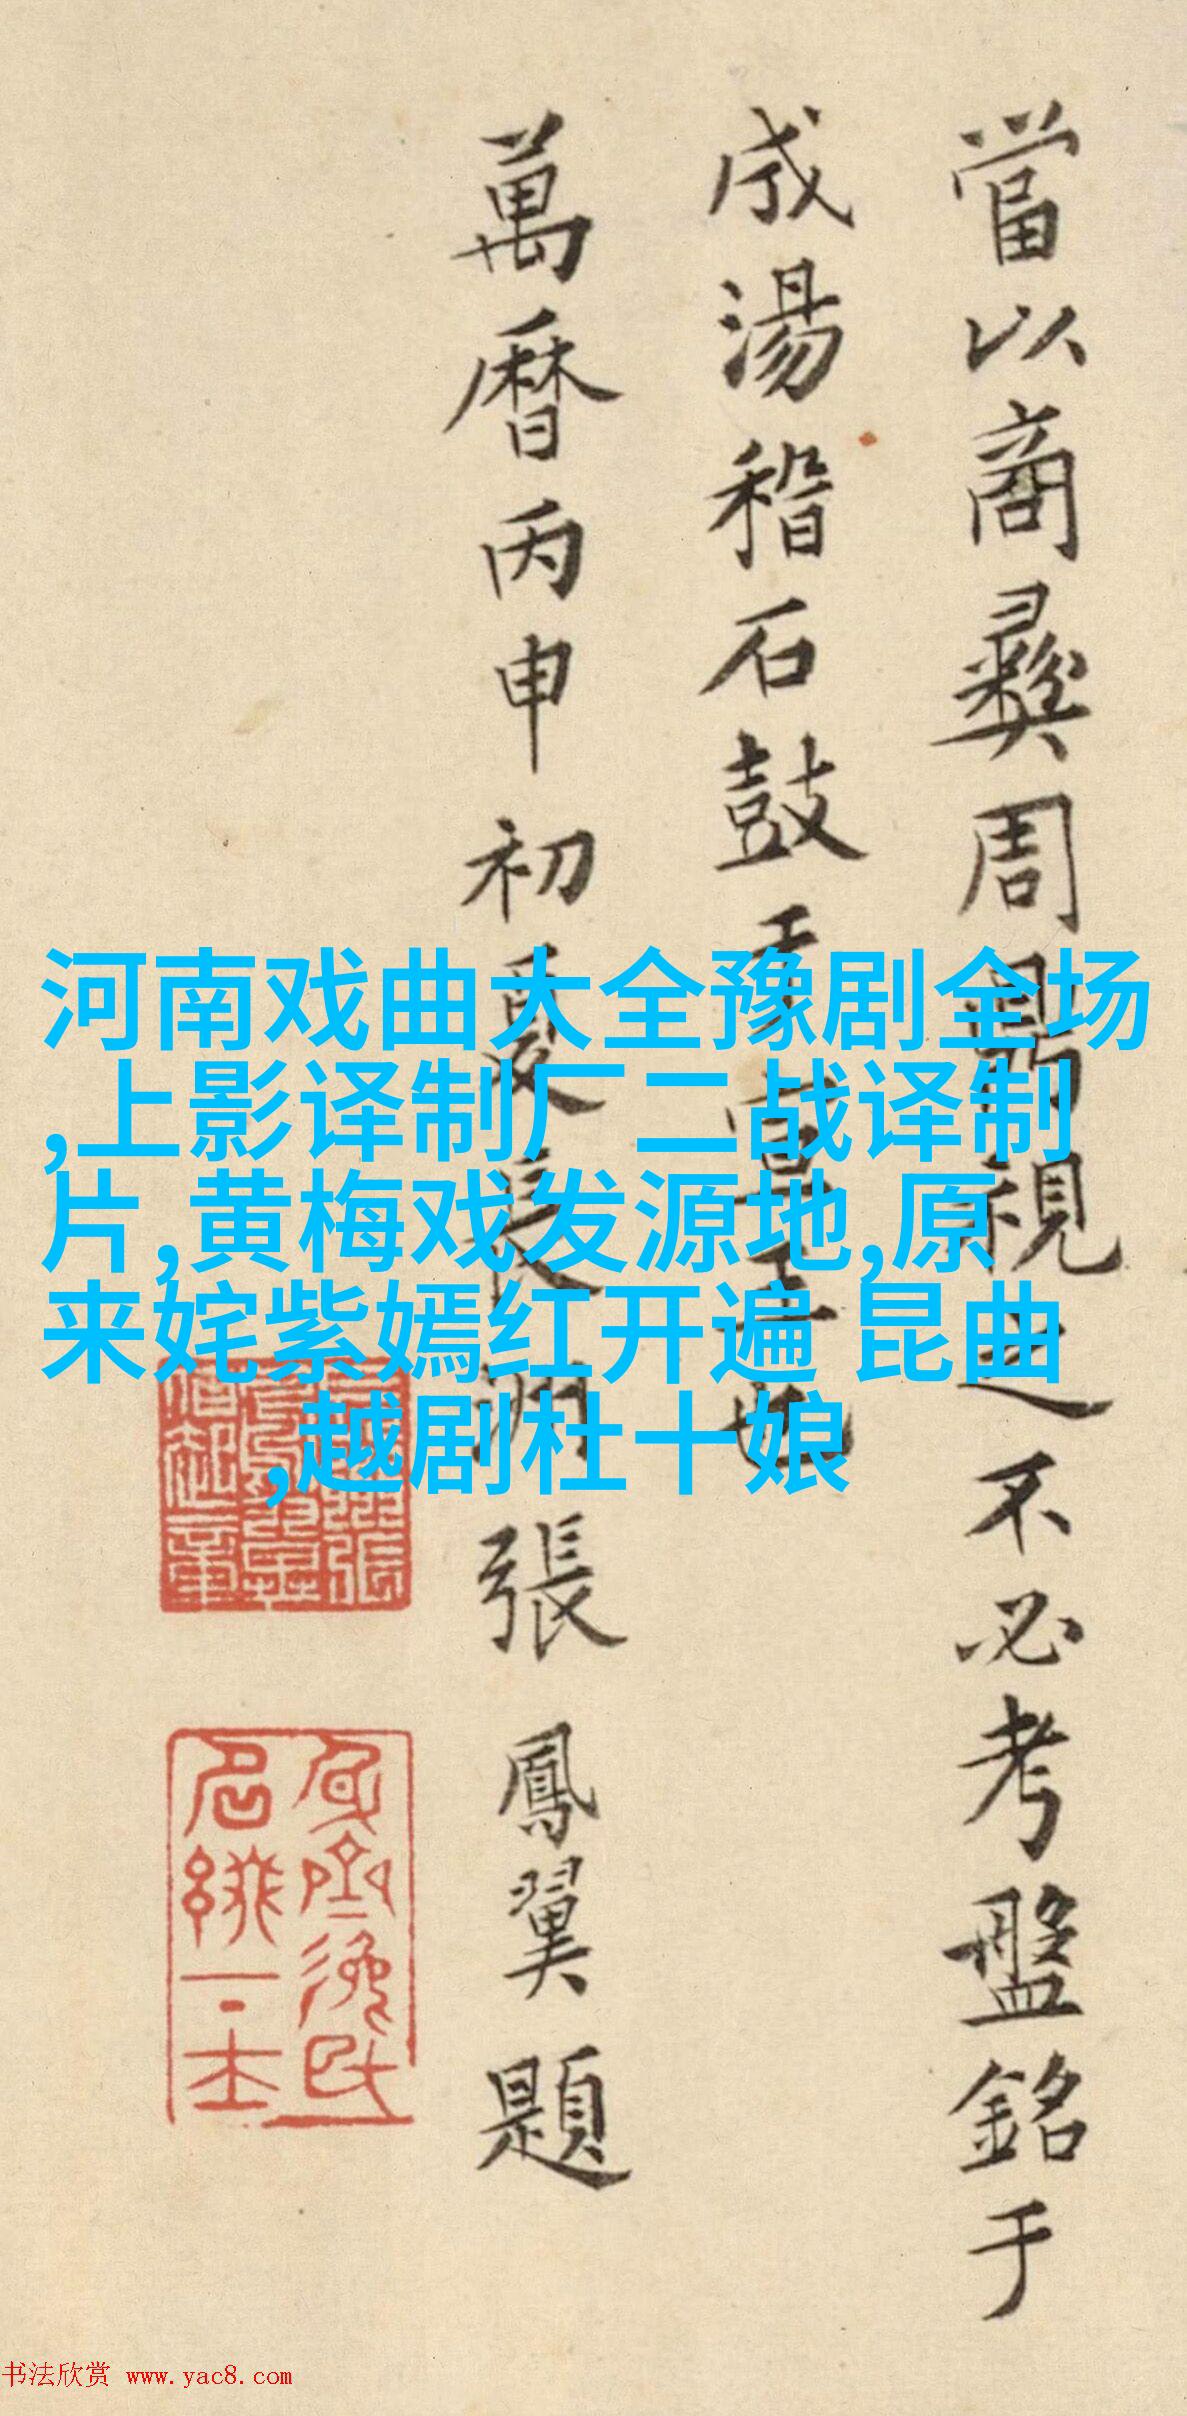 當以商彝周鼎視之不必考盤銘于
成湯稽石鼓于宣王也
萬曆丙申初夏長洲張鳳翼題
河南戏曲大全豫剧全场
,上影译制厂二战译制
片,黄梅戏发源地,原
来姹紫嫣红开遍 昆曲
,越剧杜十娘
书法欣赏 www.yac8.com